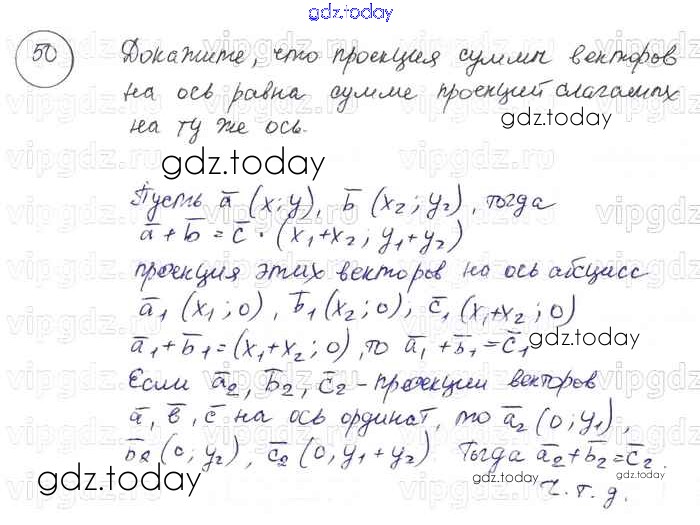 gdz.today
50
Докажите, что проекция суммы векторов
на ось равна сумме проекций слагаемых
на ту же ось.
gdz.today gdz.today
Пусть a̅ (x; y), b̅ (x₂; y₂), тогда
a̅ + b̅ = c̅ · (x₁+x₂; y₁+y₂)
проекция этих векторов на ось абсцисс
a̅₁ (x₁; 0), b̅₁ (x₂; 0); c̅₁ (x₁+x₂; 0)
gdz.today
a̅₁ + b̅₁ = (x₁+x₂; 0), то a̅₁ + b̅₁ = c̅₁
Если a̅₂, b̅₂, c̅₂ - проекции векторов
a̅, b̅, c̅ на ось ординат, то a̅₂ (0; y₁),
b̅₂ (0; y₂), c̅₂ (0, y₁+y₂) Тогда a̅₂ + b̅₂ = c̅₂.
gdz.today
ч.т.д.
gdz.today